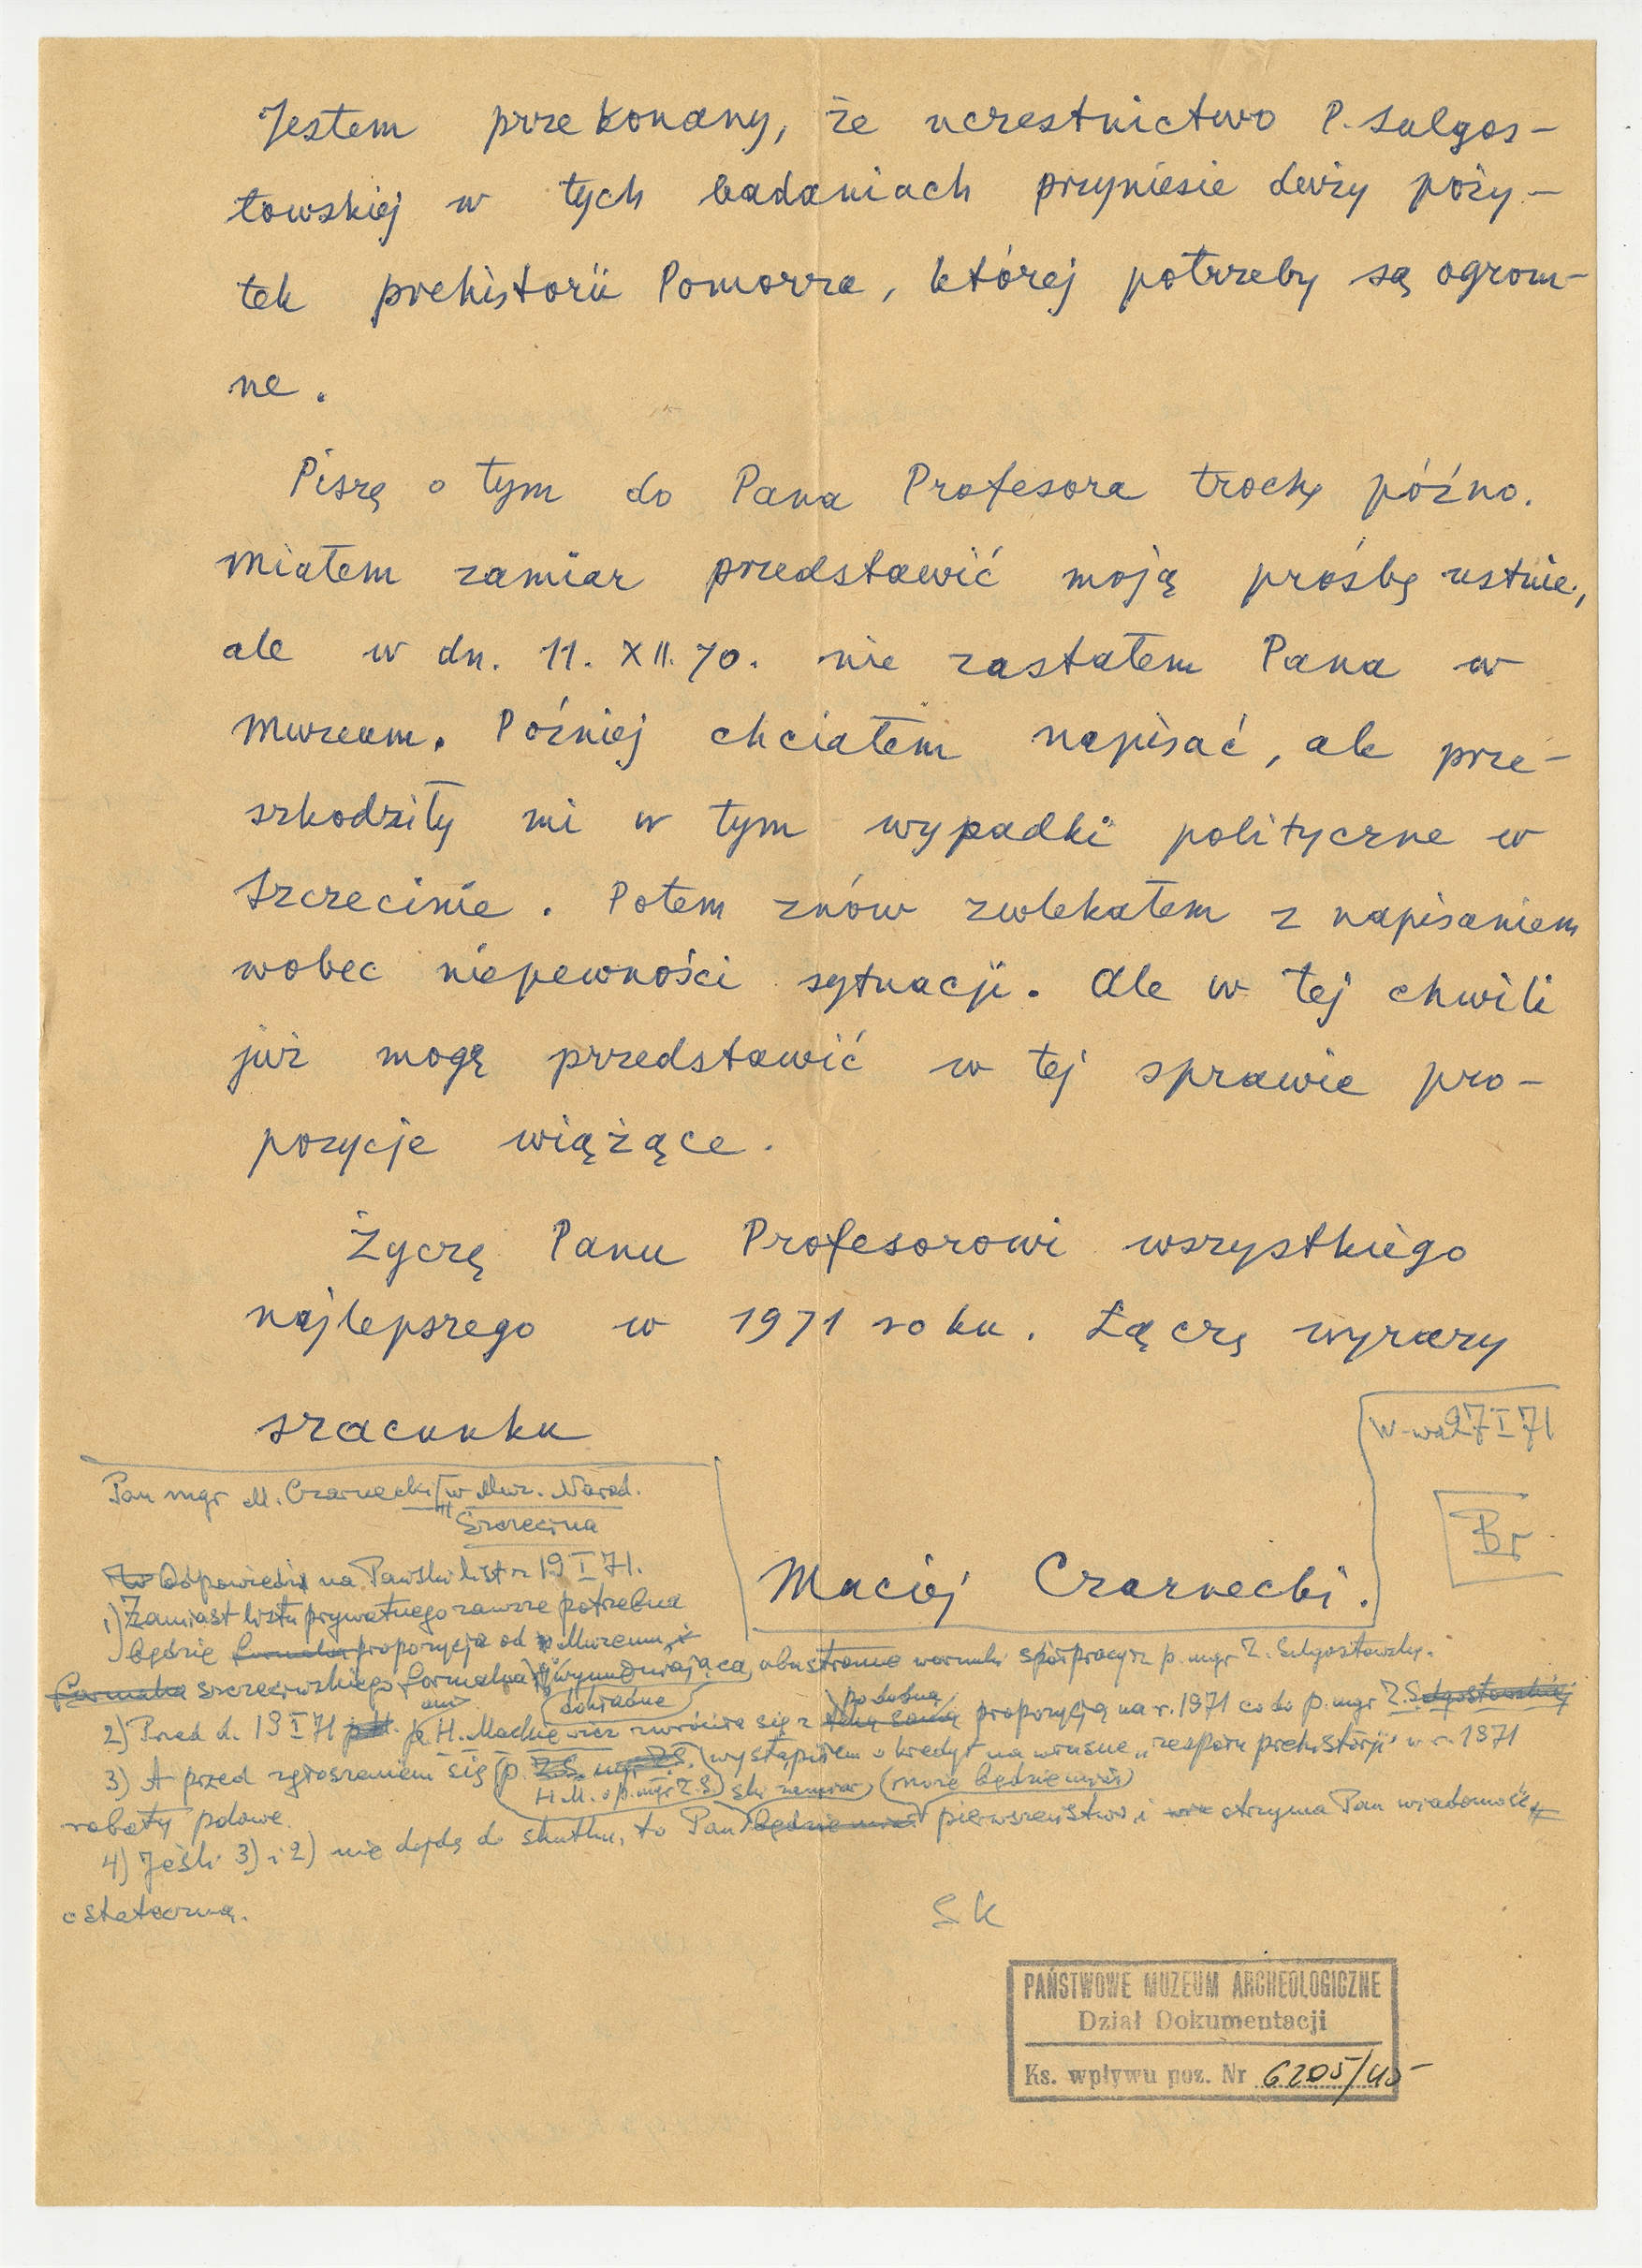 Jestem przekonany, że uczestnictwo P. Sulgos-
towskiej w tych badaniach przyniesie duży poży-
tek prehistorii Pomorza, której potrzeby są ogrom-
ne.
Piszę o tym do Pana Profesora trochę późno.
Miałem zamiar przedstawić moją prośbę ustnie,
ale w dn. 11. XII. 70. nie zastałem Pana w
Muzeum. Poźniej chciałem napisać, ale prze-
szkodziły mi w tym wypadki polityczne w
Szczecinie. Potem znów zwlekałem z napisaniem
wobec niepewności sytuacji. Ale w tej chwili
już mogę przedstawić w tej sprawie pro-
pozycje wiążące.
Życzę Panu Profesorowi wszystkiego
najlepszego w 1971 roku. Łączę wyrazy
szacunku
W-wa 27 I 71
Br
Maciej Czarnecki.
Pan mgr M. Czarnecki w Muz. Narod.
Szczecina
W Odpowiedzi na Pański list z 19 I 71.
1) Zamiast listu prywatnego zawsze potrzebna
będzie formalna propozycja od Muzeum
formalna szczecińskiego formalna i wymieniająca obustronne warunki spółpracy z p. mgr Z. Sulgostowską.
dokładne
2) Przed d. 19 I 71 p. H. Mackiewicz zwróciła się z taką samą propozycją na r. 1971 co do p. mgr Z. Sulgostowskiej
podobną
3) A przed zgłoszeniem się p. Z.S. wystąpiłem o kredyt na własne „zespołu prehistorji" w r. 1971
H.M. o p. mgr Z.S.
roboty polowe.
(może będzie miał)
4) Jeśli 3) i 2) nie dojdą do skutku, to Pan będzie miał pierwszeństwo i otrzyma Pan wiadomość
ostateczną.
SK
PAŃSTWOWE MUZEUM ARCHEOLOGICZNE
Dział Dokumentacji
Ks. wpływu poz. Nr 6205/45